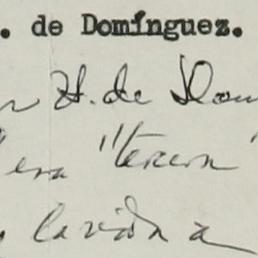 . de Domínguez.
H. de Dom
era "tercera"
la vida a